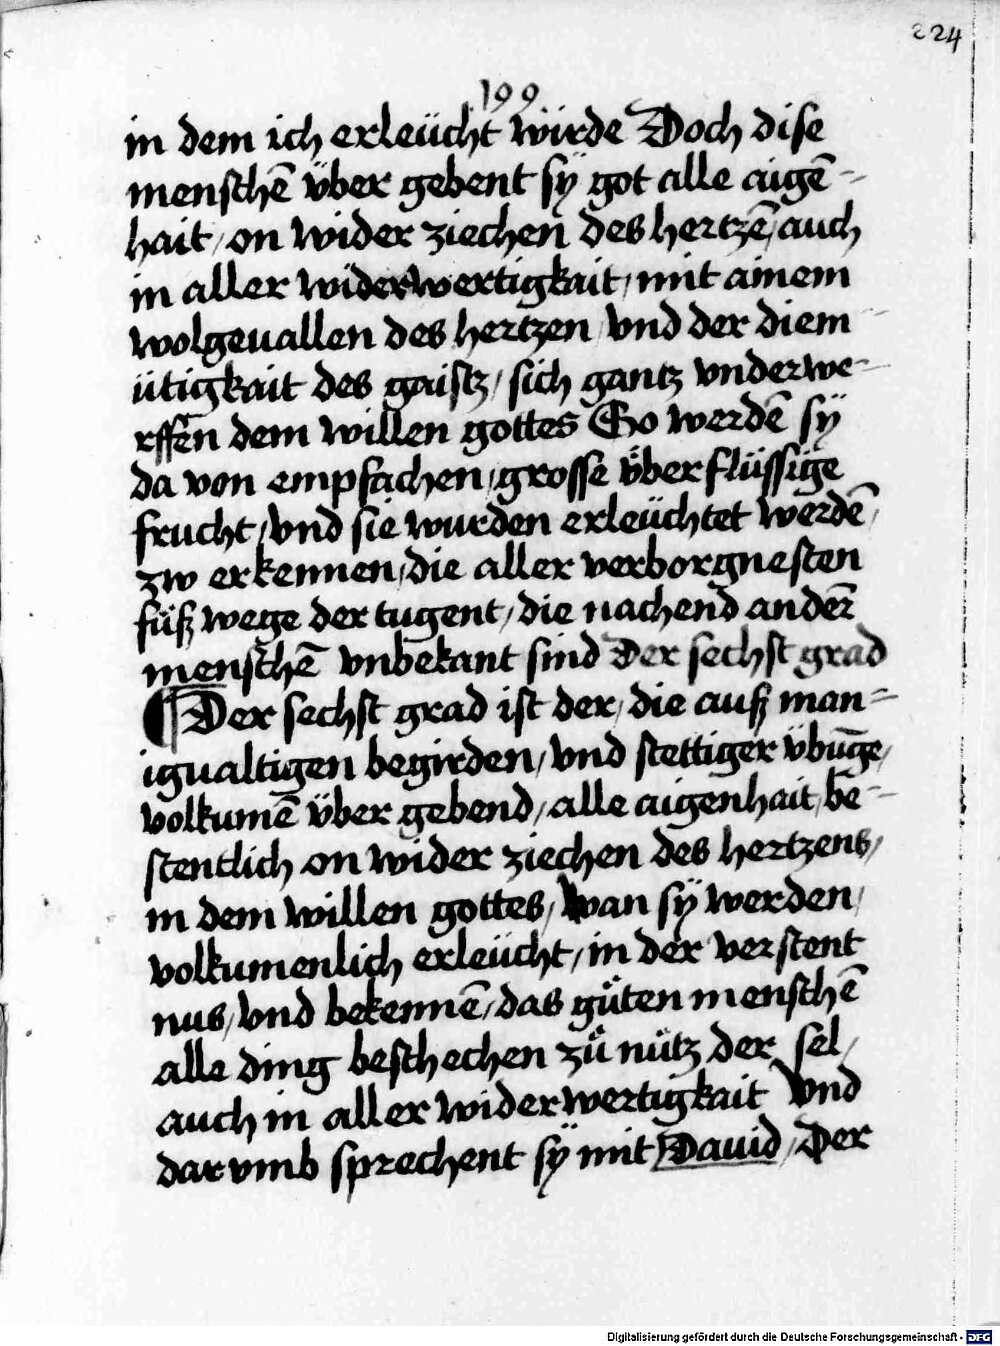 224
199
in dem ich erleücht würde Doch dise
menschē über gebent sÿ got alle aigē-
hait / on wider ziechen des hertzē / auch
in aller widerwertigkait / mit ainem
wolgeuallen des hertzen / vnd der diem
ütigkait des gaistz / sich gantz vnderwe-
rffen dem willen gottes So werdē sÿ
da von empfachen / grosse überflüssige
frucht / vnd sie wurden erleüchtet werdē /
zw erkennen / die aller verborgnesten
füß wege der tugent / die nachend ander
menschē vnbekant sind Der sechst grad
¶ Der sechst grad ist der / die auß man-
igualtigen begirden / vnd stettiger übūge /
volkumē über gebend / alle aigenhait / be-
stentlich on wider ziechen des hertzens /
in dem willen gottes / wan sÿ werden /
volkumenlich erleücht / in der verstent
nus / vnd bekennē / das gůten menschē
alle ding beschechen zů nütz der sel /
auch in aller widerwertigkait Vnd
dar vmb sprechent sÿ mit Dauid / Der
Digitalisierung gefördert durch die Deutsche Forschungsgemeinschaft - DFG